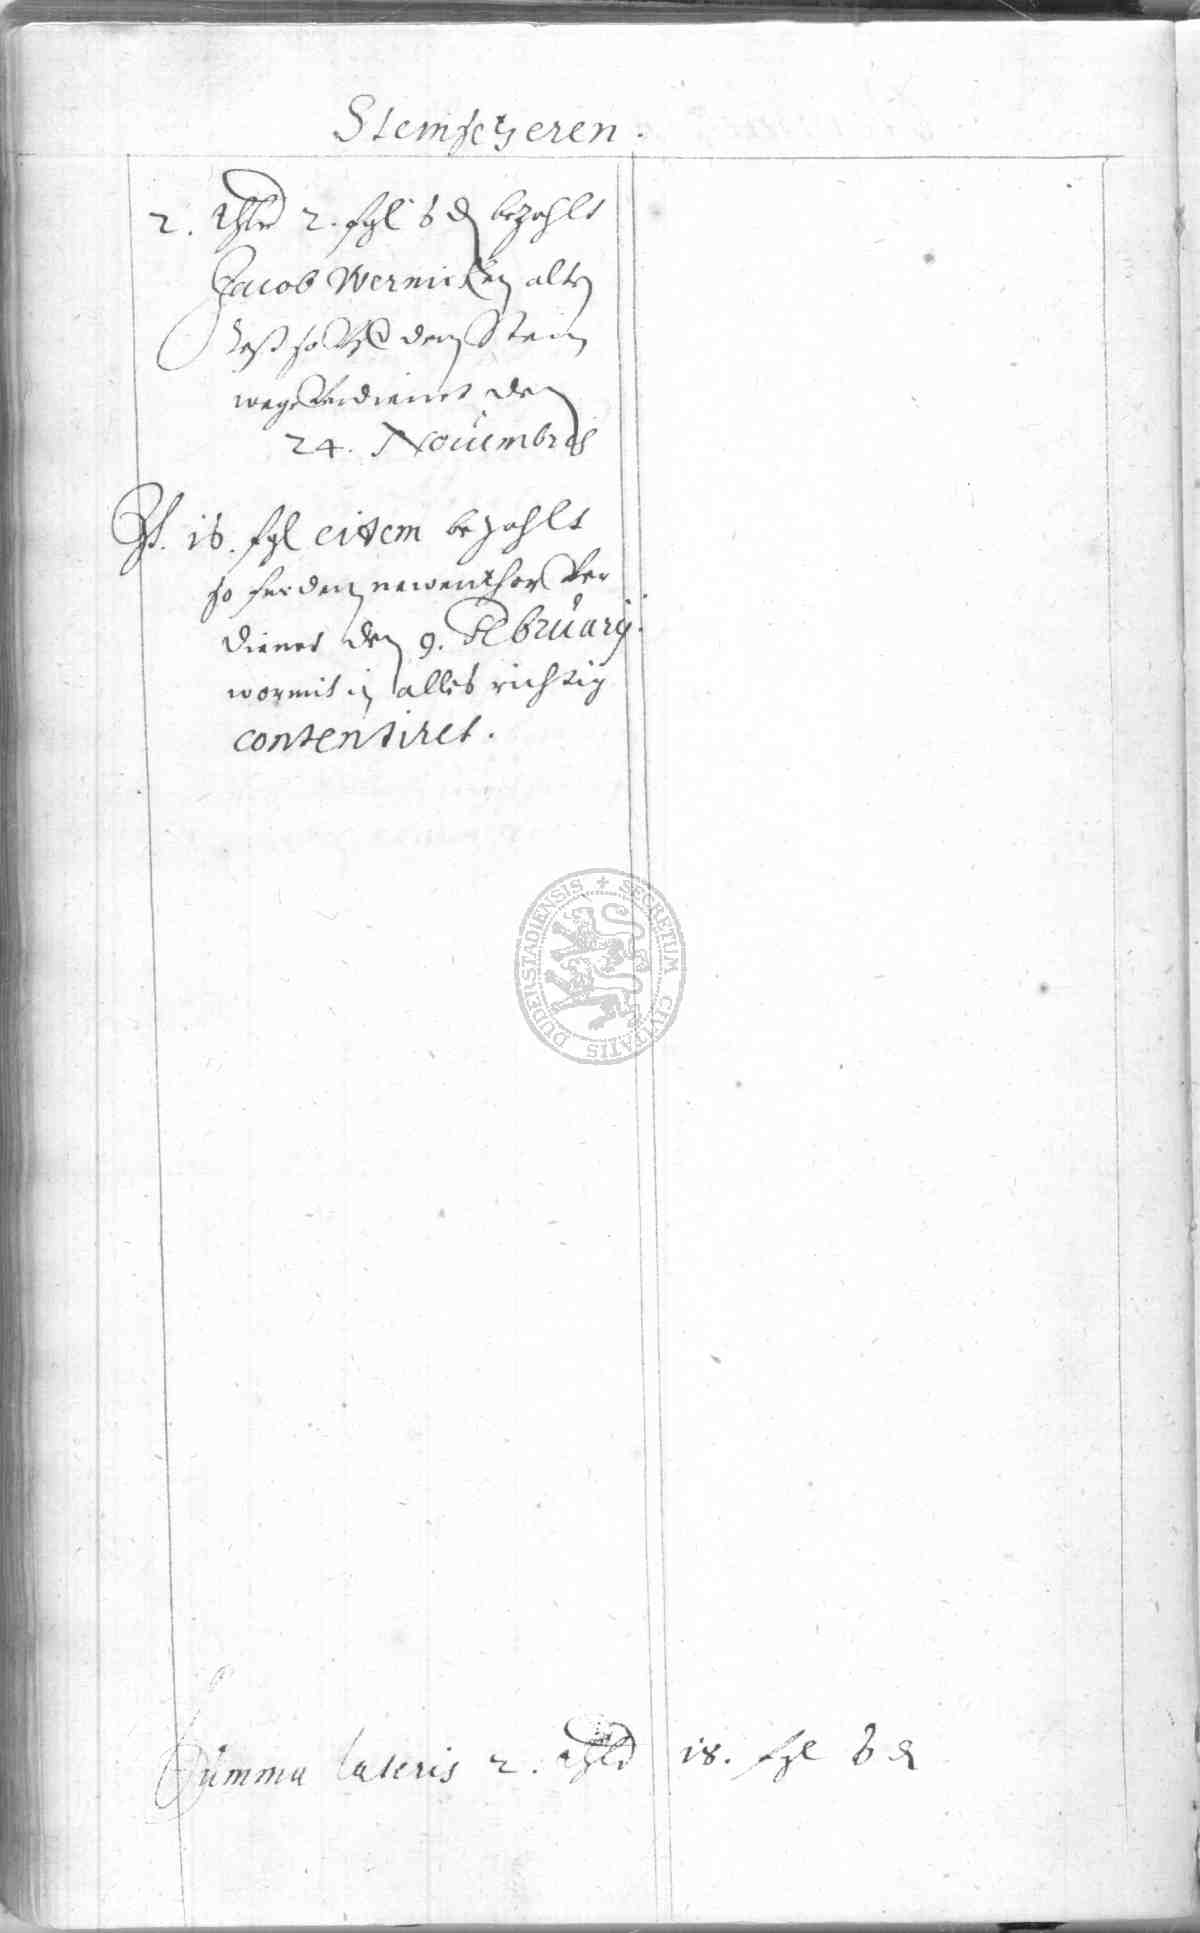 Steinsetzeren.
2. thlr 2. sgl 8 ₰ bezahlt
Jacob Wernicken alten
Rest so den Stein
wege verdienet den
24. Novembris
It. 16. sgl eidem bezahlt
so fur dem newenthor ver
dienet den 9. Februarij
wormit in alles richtig
contentiret.
SECRETUM CIVITATIS DUDERSTADIENSIS
Summa lateris 2. thlr 18. sgl 8 ₰